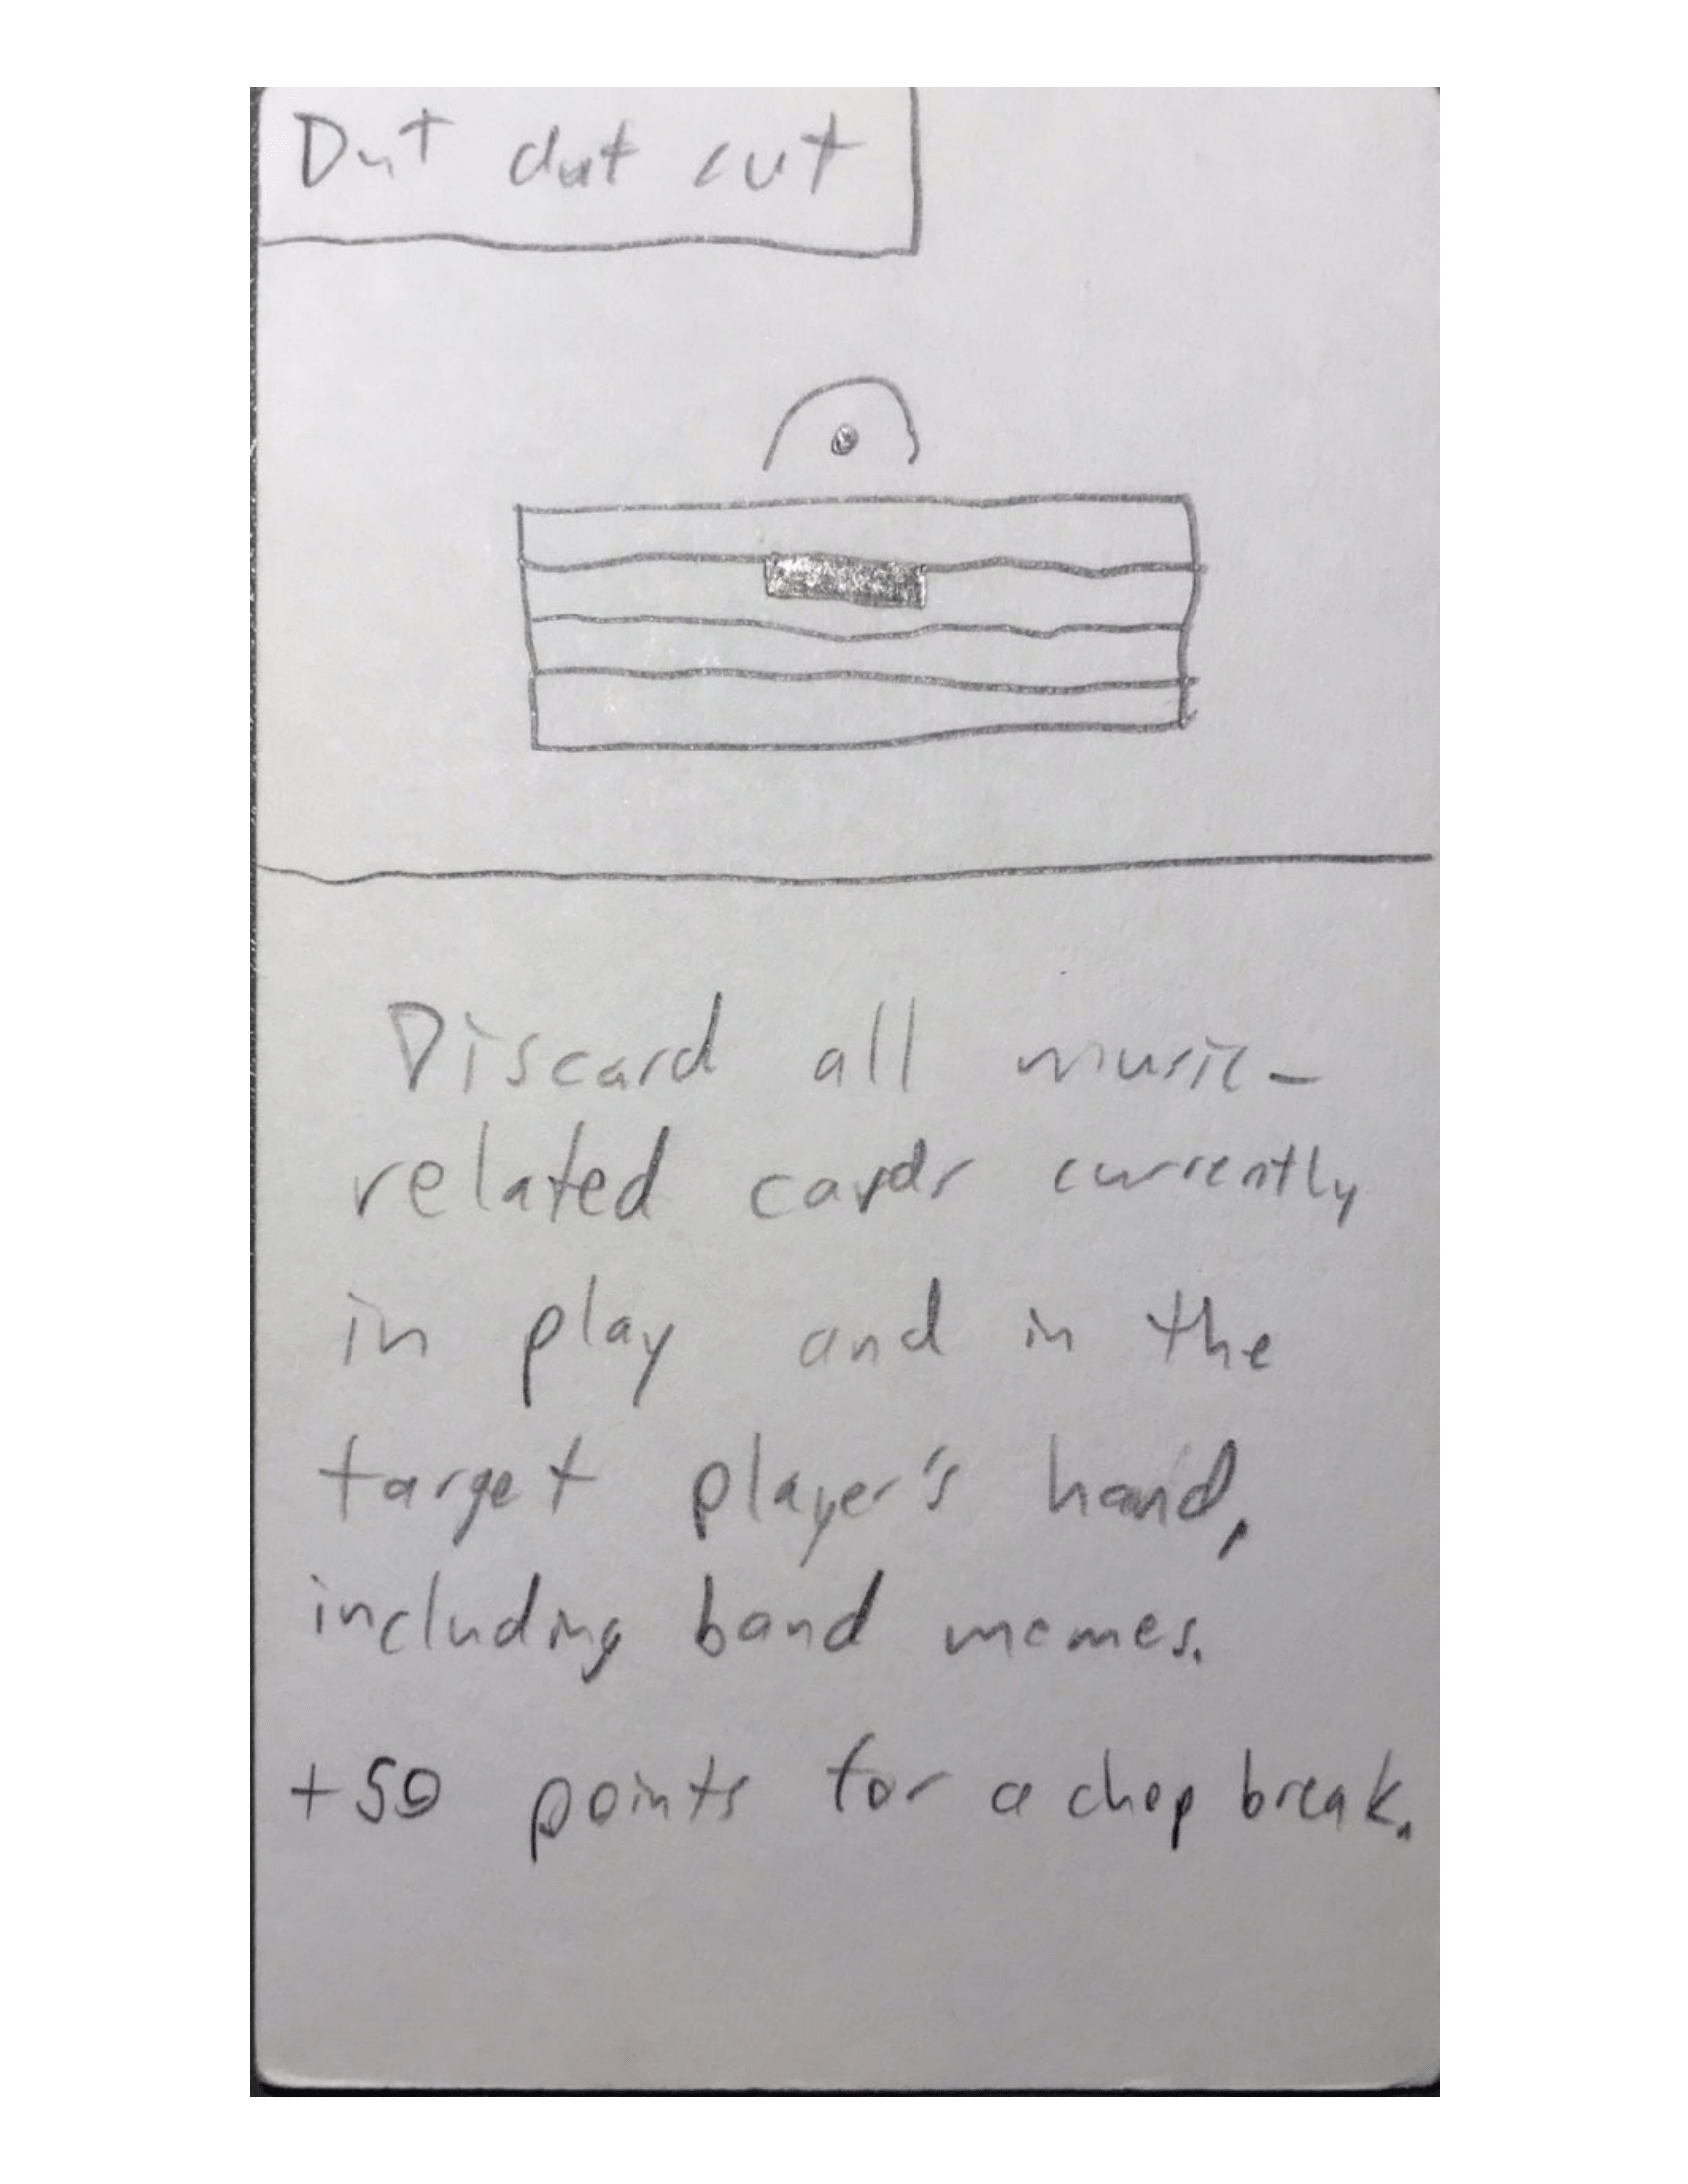 Dut dut cut
Discard all music-
related cards currently
in play and in the
target player's hand,
including band memes.
+50 points for a chop break.